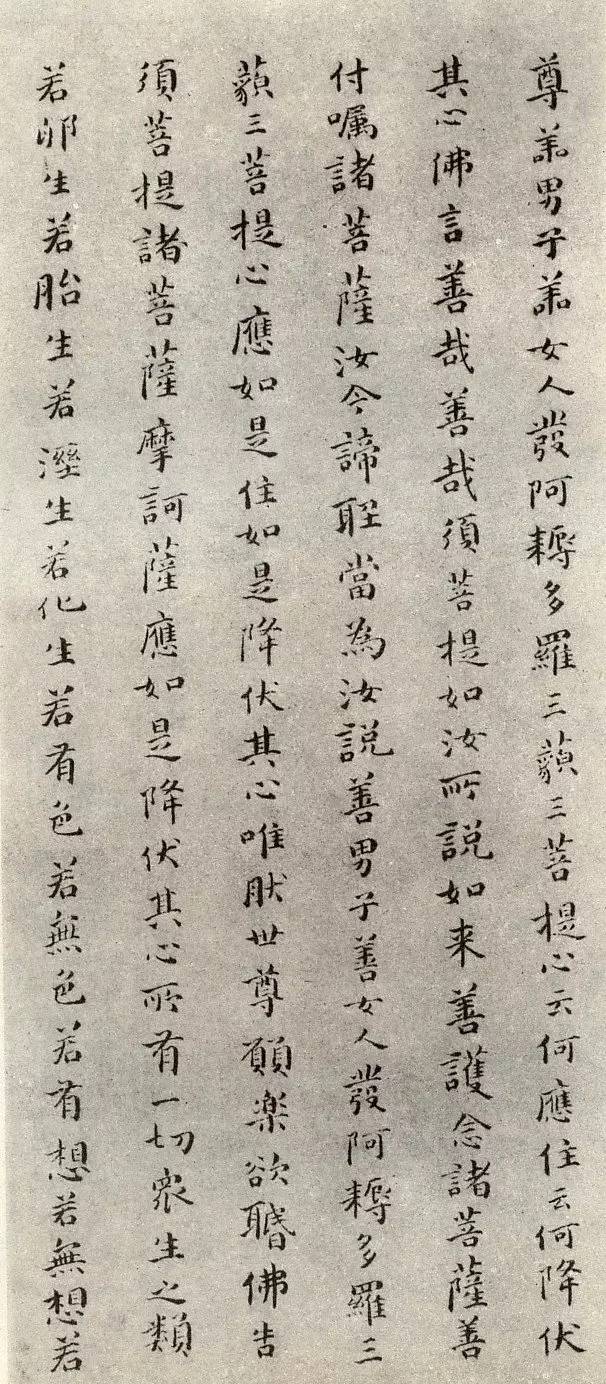 尊苐男子苐女人發阿耨多羅三藐三菩提心云何應住云何降伏
其心佛言善哉善哉須菩提如汝所説如来善護念諸菩薩善
付嘱諸菩薩汝今諦聽當為汝説善男子善女人發阿耨多羅三
藐三菩提心應如是住如是降伏其心唯肰世尊願楽欲䎽佛告
須菩提諸菩薩摩訶薩應如是降伏其心所有一切衆生之類
若卵生若胎生若溼生若化生若有色若無色若有想若無想若